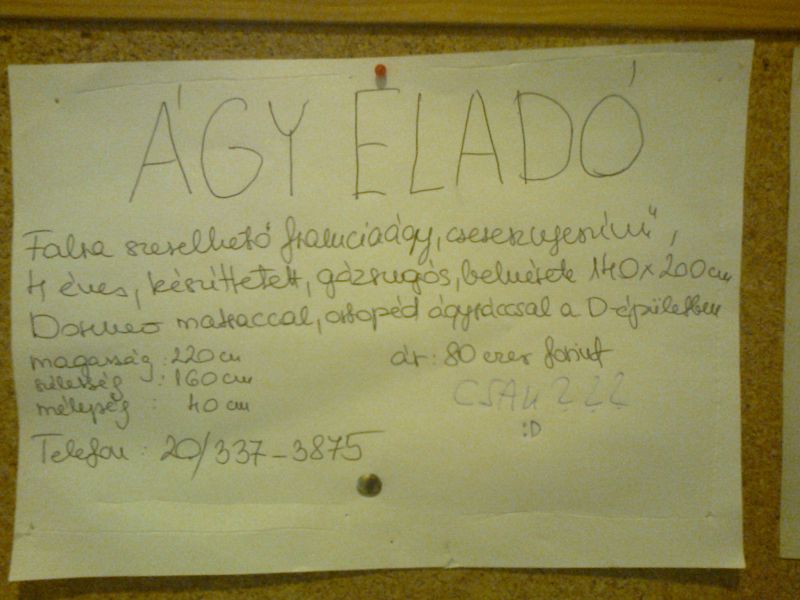 ÁGY ELADÓ
Falra szerelhető franciaágy, „cseresznyeszínű”,
4 éves, készíttetett, gázrugós, belmérete 140x200cm
Dormeo matraccal, ortopéd ágyráccsal a D-épületben
magasság: 220 cm
szélesség: 160 cm
mélység: 40 cm
ár: 80 ezer forint
CSAK???
:D
Telefon: 20/337-3875